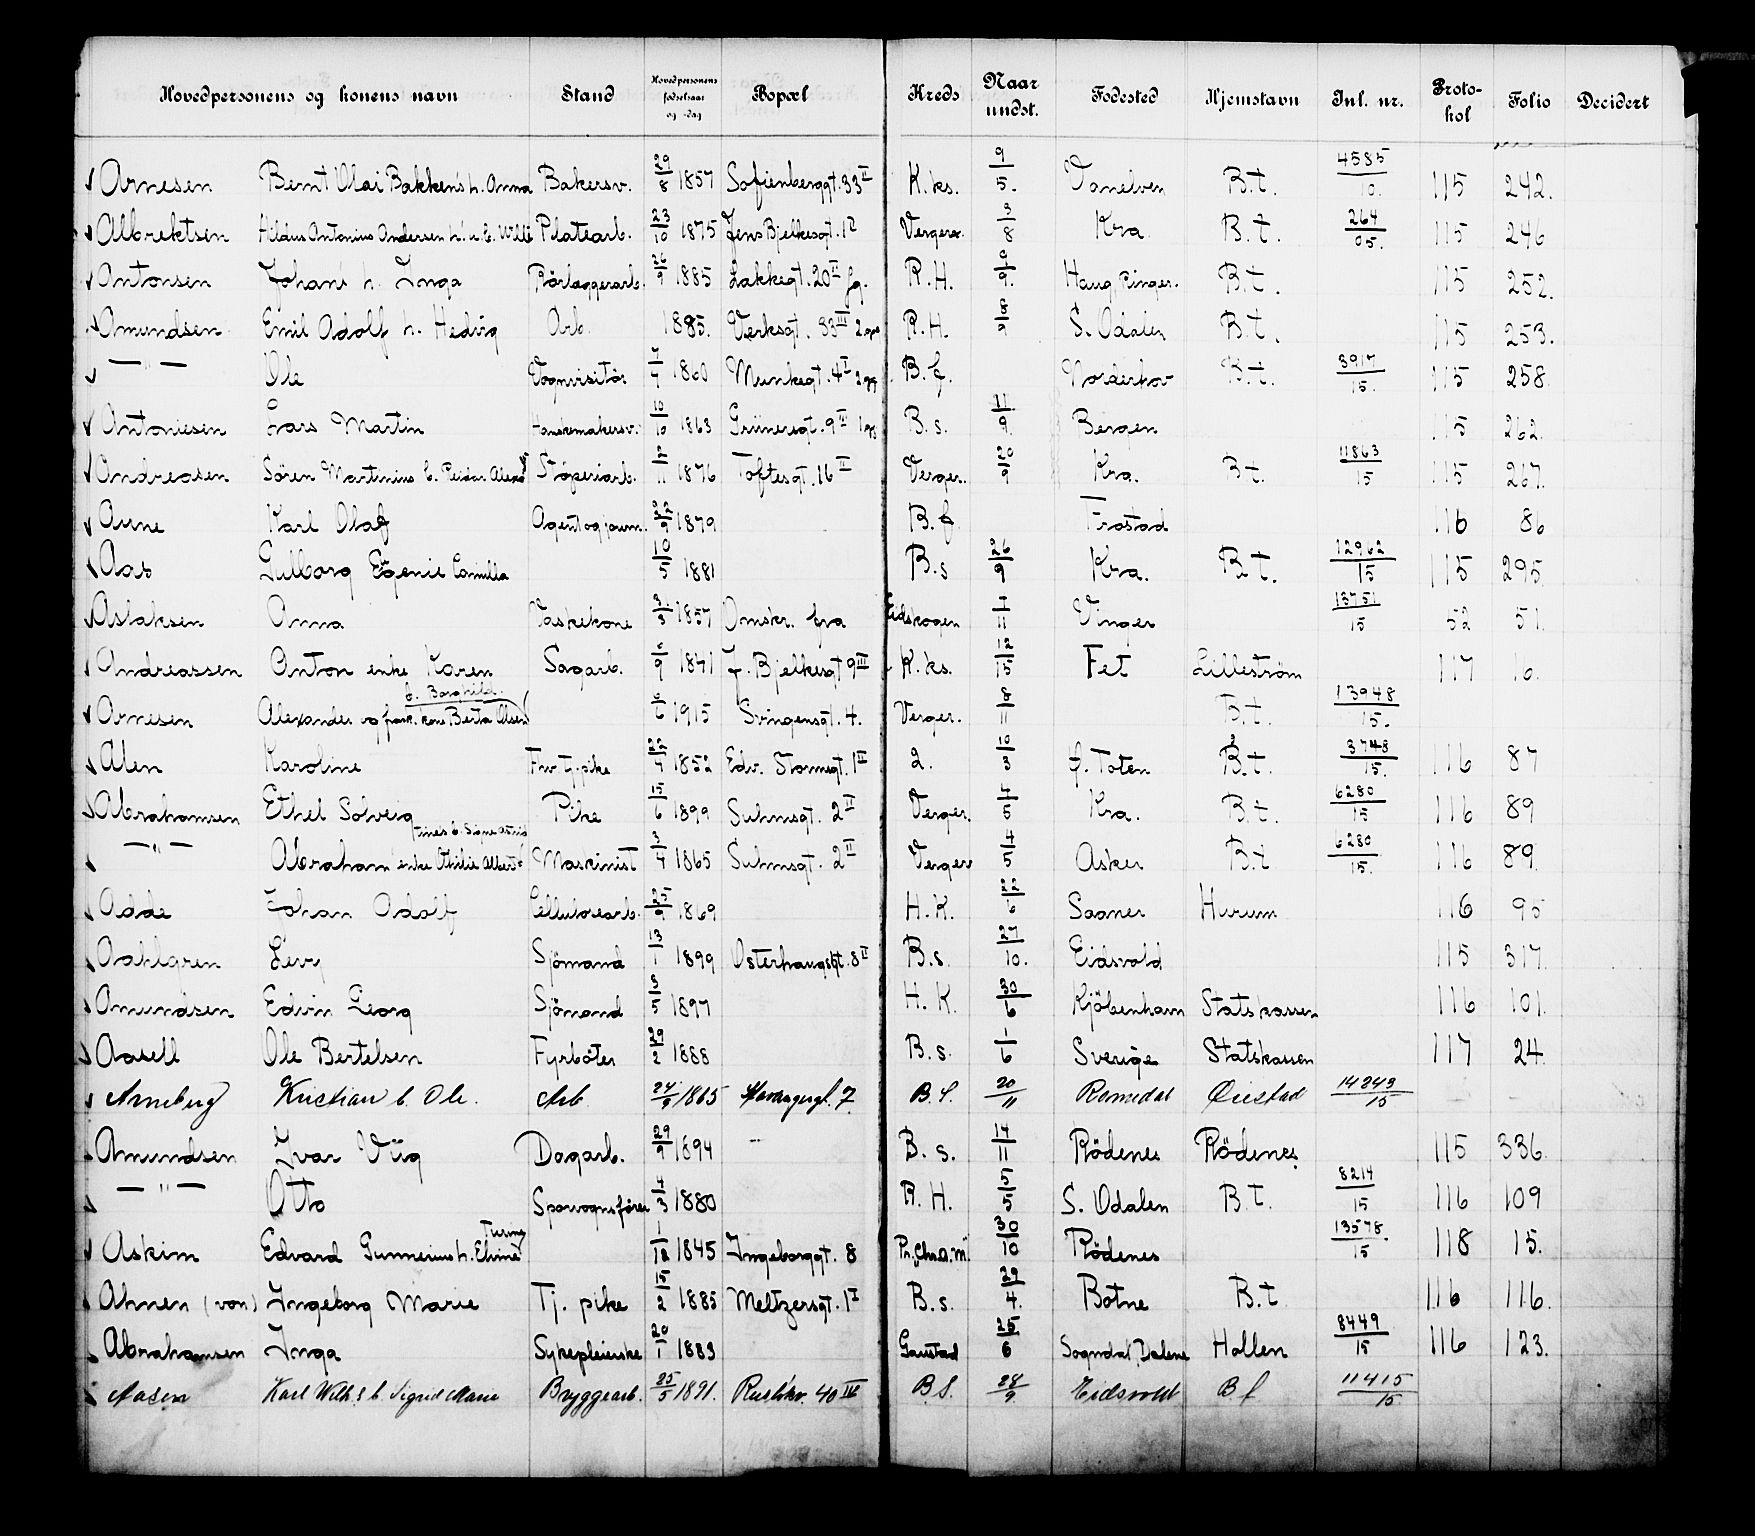 Hovedpersonens og konens navn Stand Hovedpersonens fødselsaar og -dag Bopæl Kreds Naar undst. Fødested Hjemstavn Inl. nr. Protokol Folio Decidert
Arnesen Bernt Olai Bakken's h. Anna Bakersv. 29/8 1857 Sofienberggt. 33 II K.ks. 9/5. Vanelven B.t. 4585/10. 115 242.
Albrektsen Hildus Antonius Andersen Platearb. 23/10 1875 Jens Bjelkesgt. 1 Vergerr. 3/8 Kra. B.t. 264/05. 115 246
Antonsen Johan's h. Inga Rörlæggerarb. 26/9 1885 Lakkegt. 20 II fg. R.H. 9/9. Haug, Ringer. B.t. 115 252.
Amundsen Emil Adolf h. Hedvig Arb. 1885. Verksgt. 33 III R.H. 8/9 S. Odalen B.t. 115 253.
— " — Ole Vognvisitör 7/7 1860 Munkegt. 4 I B.f. Norderhov B.t. 3917/15. 115 258.
Antoniesen Lars Martin Hanskemakersv. 10/10 1863 Grünersgt. 9 II B.s. 11/9. Bergen 115 262.
Andreasen Sören Martinius Stöperiarb. 2/11 1876 Toftesgt. 16 II Verger. 20/9 Kra. B.t. 11863/15 115 267.
Arne Karl Olaf Agent og journ. 22/9 1879 B.f. Frostad 116 86
Aas Gulborg Egenie Camilla 10/5 1881 B.s 26/9 Kra. B.t. 12962/15 115 295.
Aslaksen Anna Vaskekone 3/3 1857 Omskr. fra Eidskogen 1/11 Vinger 13751/15 52 51.
Andreassen Anton enke Karen Sagarb. 6/9 1841 J. Bjelkesgt 9 III K.ks. 12/15 Fet Lilleström 117 16.
b. Borghild.
Arnesen Alexander og frask. kone Berta Olsen 6/6 1915 Svingensgt. 4. Verger. 8/11 B.t. 13948/15.
Alen Karoline Frv. tj. pike 22/7 1852 Edv. Stormsgt. 1 II 2. 10/3 Ö. Toten B.t. 3748/15. 116 87
Abrahamsen Ethel Solveig Pike 15/6 1899 Suhmsgt. 2 II Verger. 4/5 Kra. B.t. 6280/15 116 89
— " — Abraham enke Othilie Maskinist 3/4 1865 Suhmsgt. 2 II Verger 4/5 Asker B.t 6280/15. 116 89.
Adde Johan Adolf Cellulosearb. 25/9 1869 H.K. 22/6 Saaner Hurum 116 95
Aahlgren Levy Sjömand 13/1 1899 Osterhausgt. 8 II B.s. 27/10. Eidsvold 115 317.
Amundsen Edvin Georg Sjömand 3/5 1897 H.K. 30/6 Kjöbenhavn Statskassen 116 101.
Aasell Ole Bertelsen Fyrböter 29/2 1888 B.s. 1/6 Sverige Statskassen 117 24.
Arneberg Kristian b. Ole. Arb. 24/9 1865 Stavangergt. 7. B.S. 20/11 Romedal 14243/15
Amundsen Ivar Viig Dagarb. 29/9 1894 B.s. 14/11 Rödenes Rödenes. 115 336.
— " — Otto Sporvognsförer 4/3 1880 R.H. 5/5 S. Odalen B.t. 8214/15 116 109
Askim Edvard Gunnerius h. Elvine Turine 1/12 1845 Ingeborggt. 8 Pr. Chr.a.m. 30/10 Rödenes 13578./15 118 15.
Ahnen (von) Ingeborg Marie Tj. pike 15/2 1885 Meltzersgt. 1 I B.s. 29/4. Botne B.t 116 116.
Abrahamsen Inga Sykepleierske 20/1 1883 Gaustad 25/6 Sogndal, Dalene Hollen 8449/15 116 123.
Aasen Karl Wilh. s b. Sigrid Marie Bryggearb. 25/5 1891. Ruslökv. 40 IV B.S. 28/9. Eidsvold B f 11415/15.